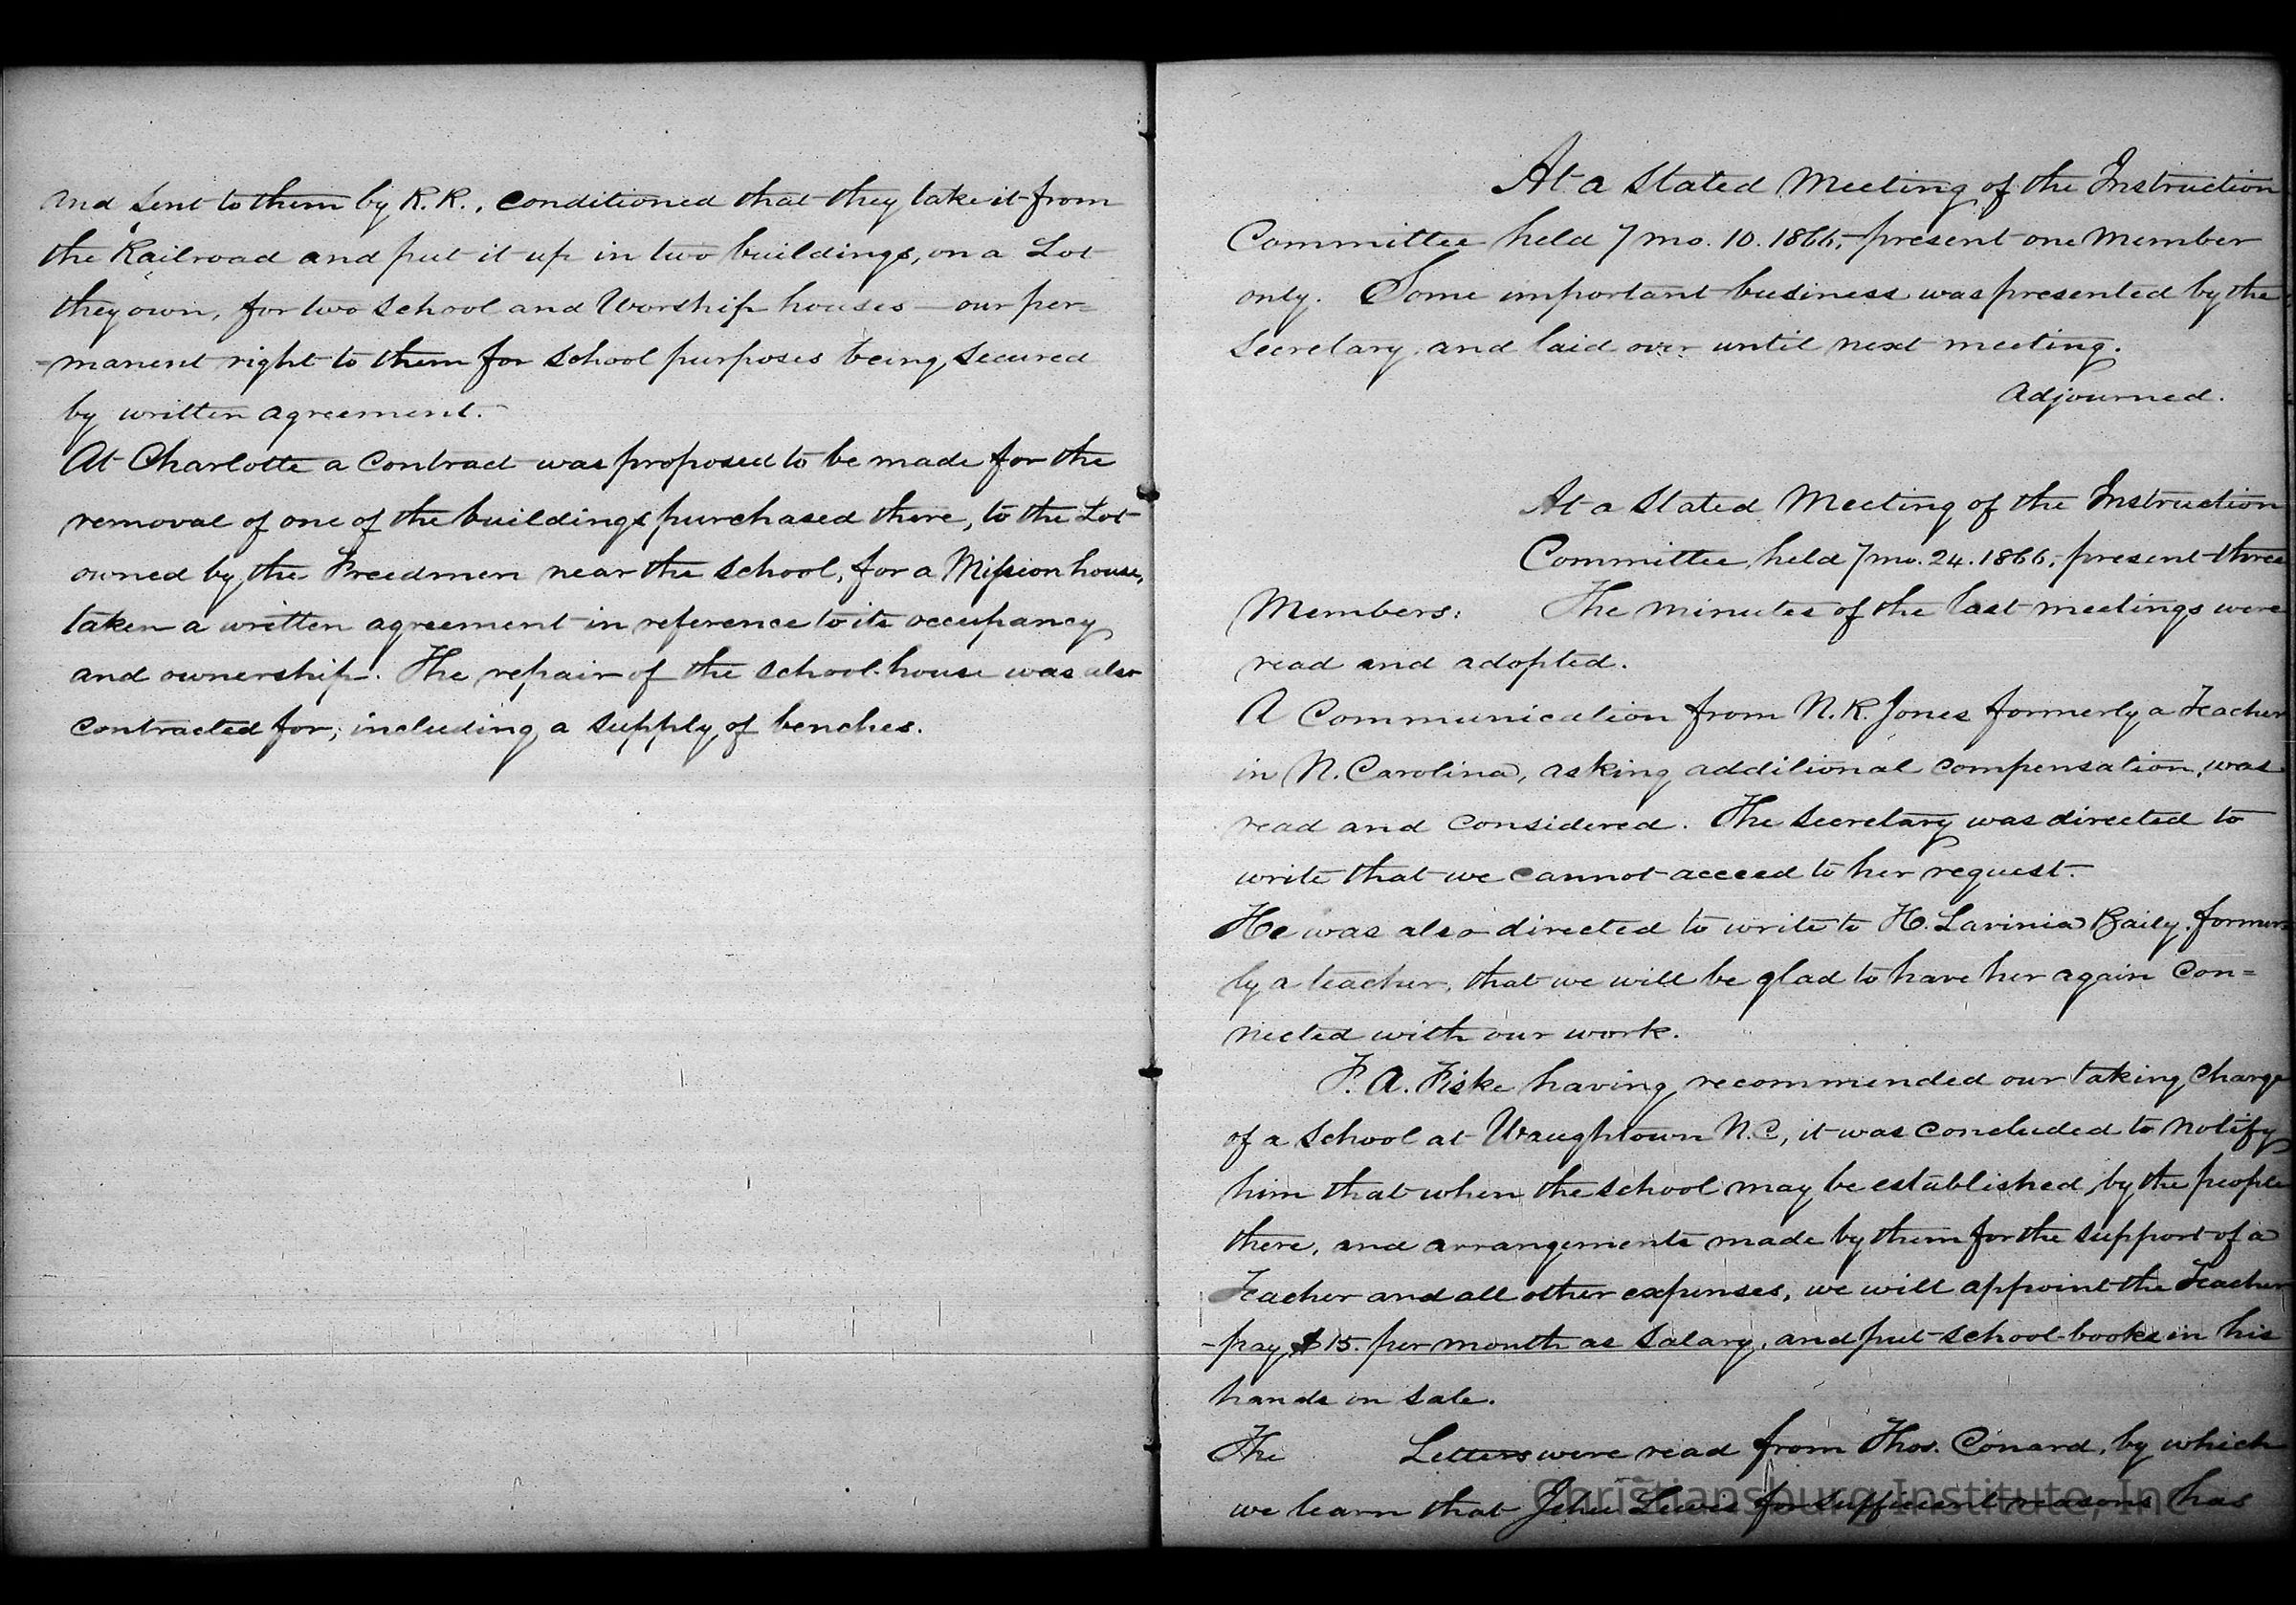 and sent to them by R.R., conditioned that they take it from
the Railroad and put it up in two buildings, on a Lot
they own, for two School and Worship houses — our per=
-manent right to them for school purposes being secured
by written agreement.
At Charlotte a contract was proposed to be made for the
removal of one of the buildings purchased there, to the Lot
owned by the Freedmen near the school, for a Mission house,
taken a written agreement in reference to its occupancy
and ownership. The repair of the school-house was also
contracted for, including a supply of benches.
At a Stated Meeting of the Instruction
Committee held 7 mo. 10. 1866, present one Member
only. Some important business was presented by the
Secretary and laid over until next meeting.
Adjourned.
At a Stated Meeting of the Instruction
Committee held 7 mo. 24. 1866, present three
Members: The minutes of the last meetings were
read and adopted.
A Communication from N.R. Jones formerly a Teacher
in N. Carolina, asking additional compensation, was
read and considered. The Secretary was directed to
write that we cannot acceed to her request.
He was also directed to write to H. Lavinia Baily, former=
ly a teacher, that we will be glad to have her again con=
nected with our work.
F. A. Fiske having recommended our taking charge
of a School at Waughtown N.C, it was concluded to notify
him that when the school may be established by the people
there, and arrangements made by them for the support of a
Teacher and all other expenses, we will appoint the Teacher
-pay $15. per month as Salary, and put school-books in his
hands on sale.
The Letters were read from Thos. Conard, by which
we learn that Jehu Lewis for sufficient reasons has
Christiansburg Institute, Inc